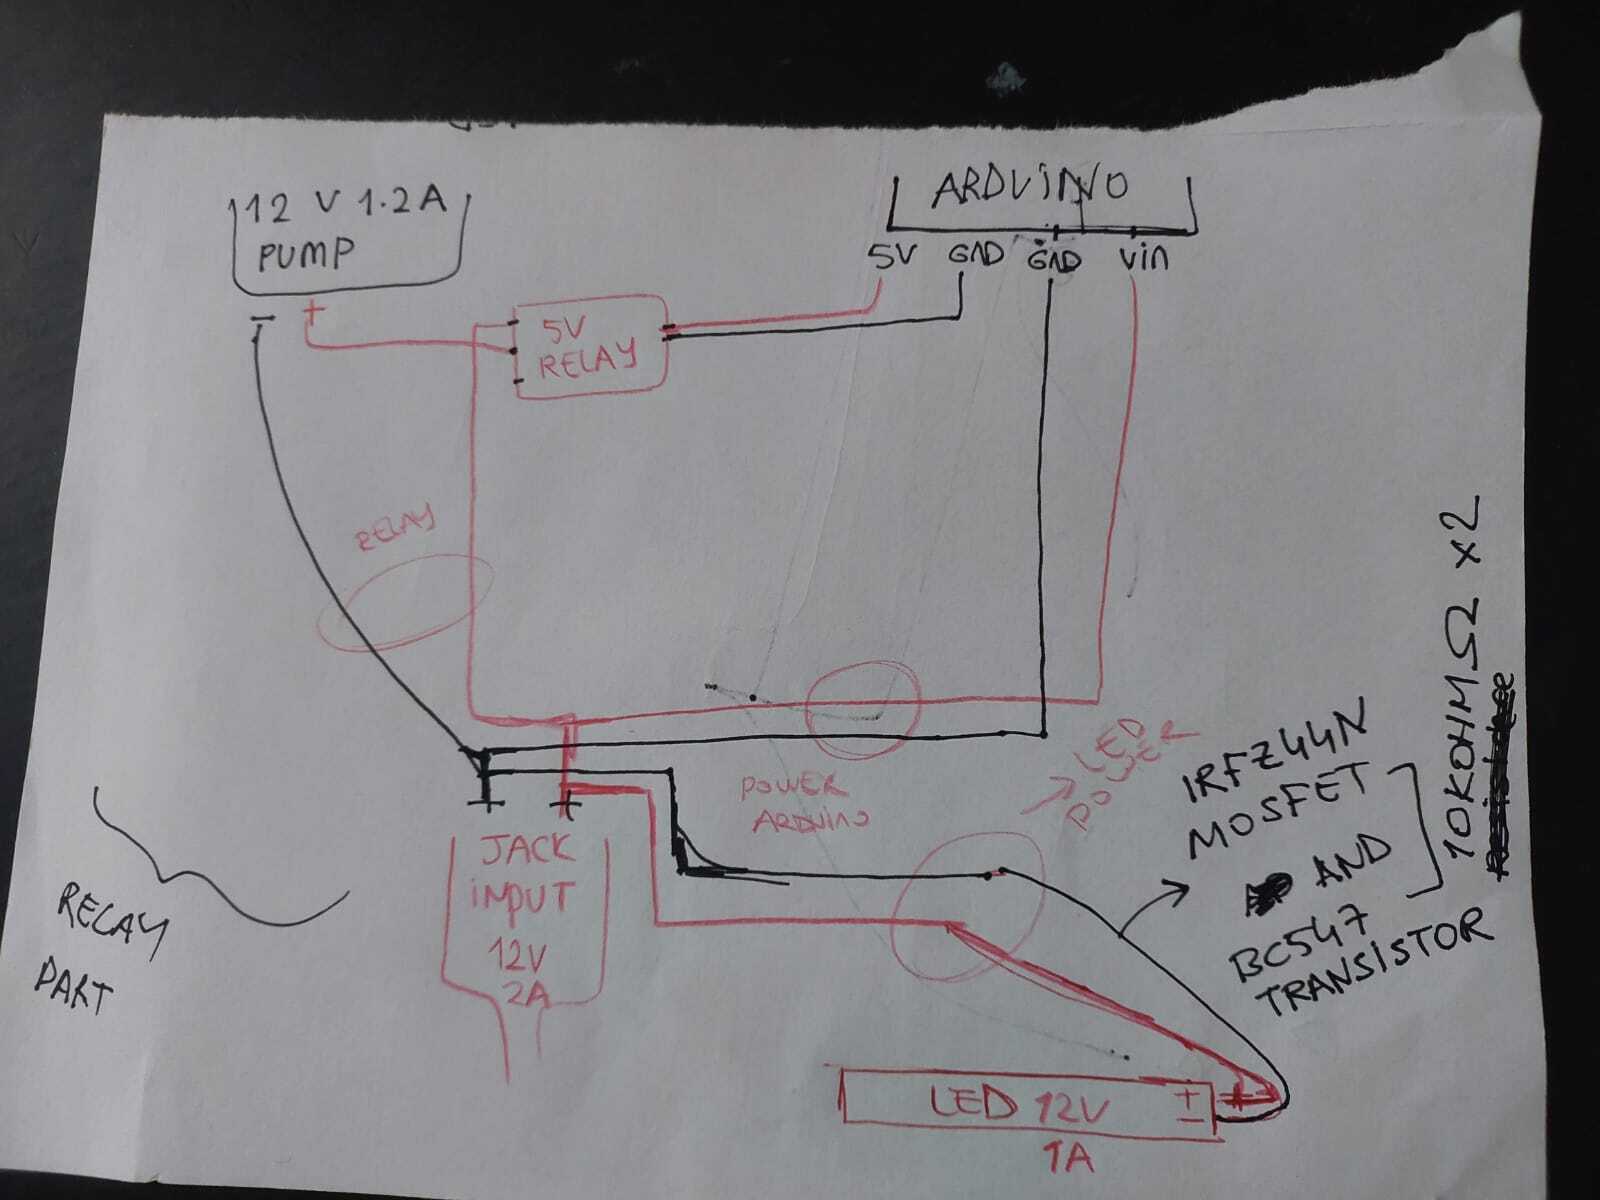 12 V 1.2A
PUMP
- +
ARDUiNO
5V GND GND Vin
5V
RELAY
RELAY
POWER
ARDUiNO
LED
POWER
JACK
iNPUT
12V
2A
RELAY
PART
IRFZ44N
MOSFET
AND
BC547
TRANSiSTOR
10KOHMΩ x2
LED 12V
+
-
1A